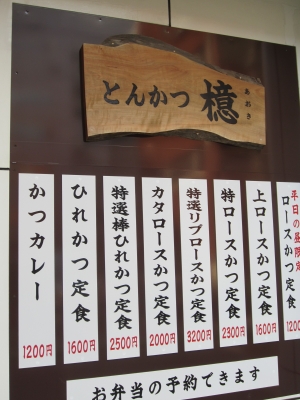 とんかつ 檍
あおき
平日の昼限定
ロースかつ定食
上ロースかつ定食
1600円
特ロースかつ定食
2300円
特選リブロースかつ定食
3200円
カタロースかつ定食
2000円
特選棒ひれかつ定食
2500円
ひれかつ定食
1600円
かつカレー
1200円
お弁当の予約できます